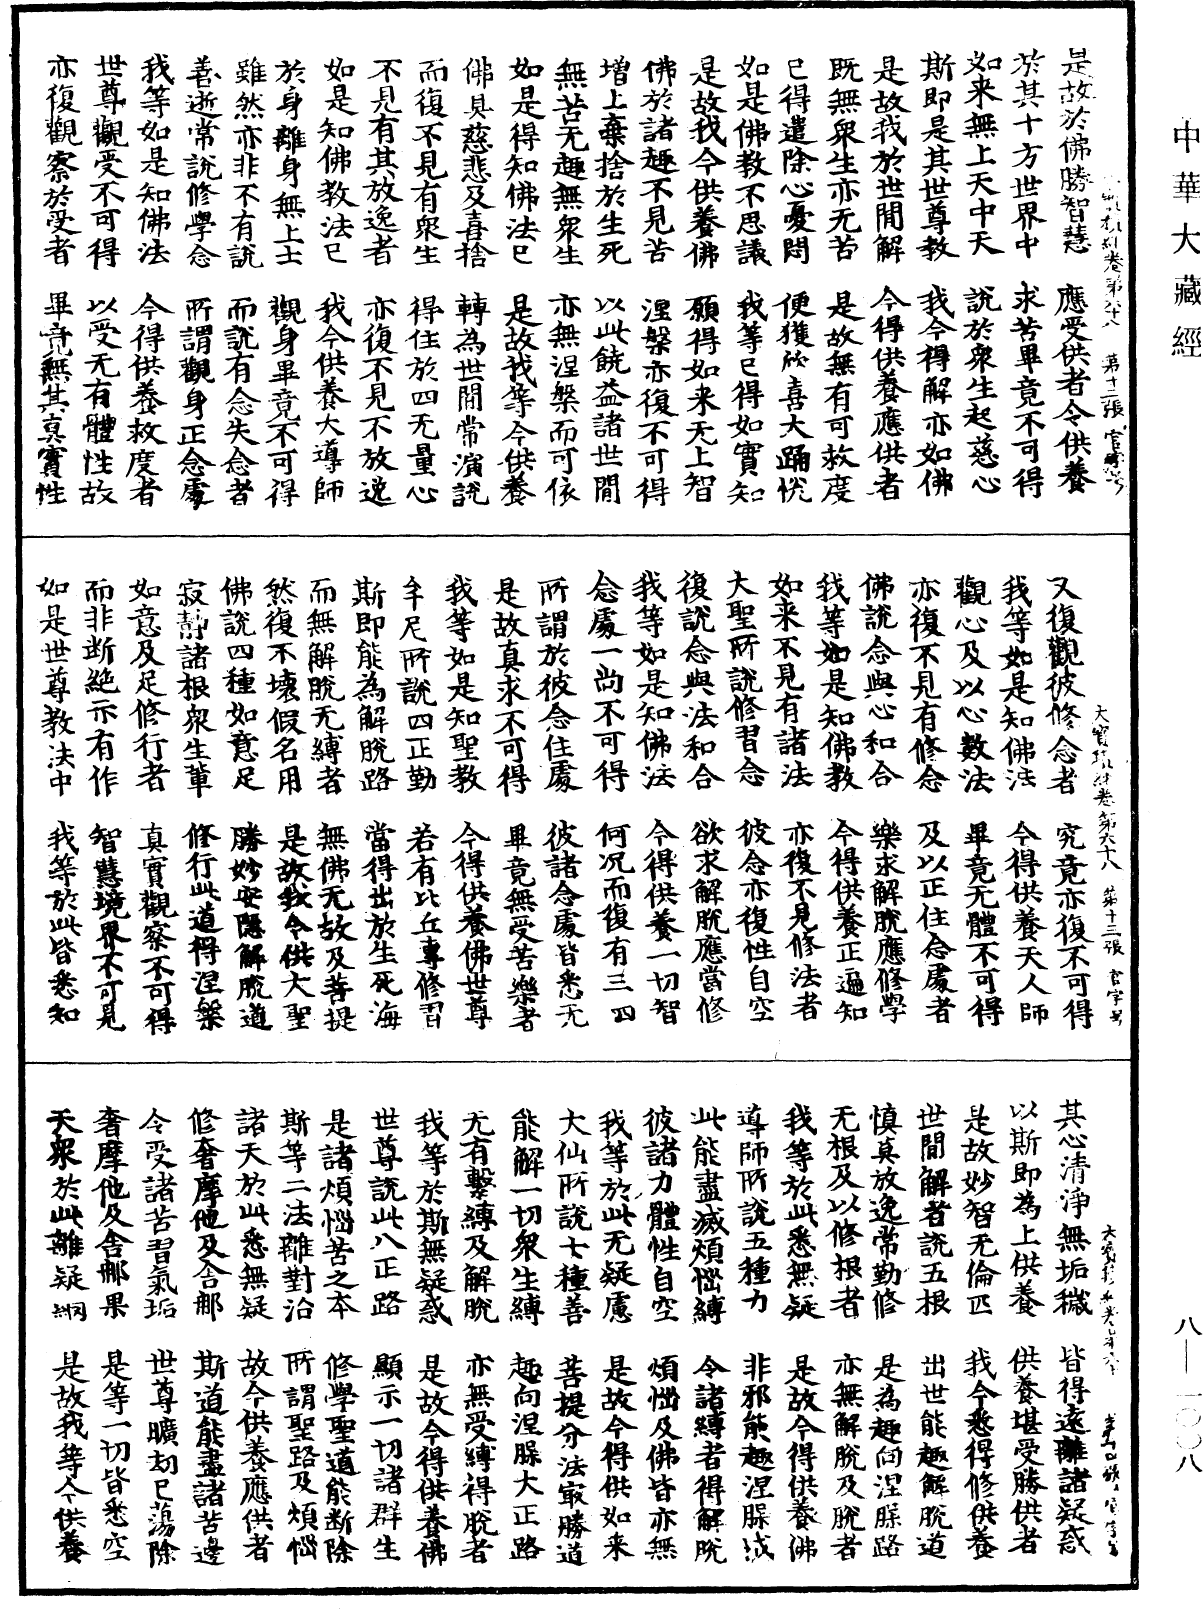 中華大藏經
是故於佛勝智慧　應受供者令供養
於其十方世界中　求苦畢竟不可得
如来無上天中天　說於衆生起慈心
斯即是其世尊教　我今得解亦如佛
是故我於世間解　今得供養應供者
既無衆生亦无苦　是故無有可救度
已得遣除心憂悶　便獲欣喜大踊恱
如是佛教不思議　我等已得如實知
是故我今供養佛　願得如来无上智
佛於諸趣不見苦　涅槃亦復不可得
增上棄捨於生死　以此饒益諸世間
無苦无趣無衆生　亦無涅槃而可依
如是得知佛法已　是故我等今供養
佛具慈悲及喜捨　轉為世間常演說
而復不見有衆生　得住於四无量心
不見有其放逸者　亦復不見不放逸
如是知佛教法已　我今供養大導師
於身離身無上士　觀身畢竟不可得
雖然亦非不有說　而說有念失念者
善逝常說修學念　所謂觀身正念處
我等如是知佛法　今得供養救度者
世尊觀受不可得　以受无有體性故
亦復觀察於受者　畢竟無其真實性
又復觀彼修念者　究竟亦復不可得
我等如是知佛法　今得供養天人師
觀心及以心數法　畢竟无體不可得
亦復不見有修念　及以正住念處者
佛說念與心和合　樂求解脫應修學
我等如是知佛教　今得供養正遍知
如来不見有諸法　亦復不見修法者
大聖所說修習念　彼念亦復性自空
復說念與法和合　欲求解脫應當修
我等如是知佛法　今得供養一切智
念處一尚不可得　何況而復有三四
所謂於彼念住處　彼諸念處皆悉无
是故真求不可得　畢竟無受苦樂者
我等如是知聖教　今得供養佛世尊
牟尼所說四正勤　若有比丘專修習
斯即能為解脫路　當得出於生死海
而無解脫无縛者　無佛无故及菩提
然復不壞假名用　是故我今供大聖
佛說四種如意足　勝妙安隱解脫道
寂靜諸根衆生軰　修行此道得涅槃
如意及足修行者　真實觀察不可得
而非断絶示有作　智慧境界不可見
如是世尊教法中　我等於此皆悉知
其心清淨無垢穢　皆得遠離諸疑惑
以斯即為上供養　供養堪受勝供者
是故妙智无倫匹　我今悉得修供養
世間解者說五根　出世能趣解脫道
慎莫放逸常勤修　是為趣向涅槃路
无根及以修根者　亦無解脫及脫者
我等於此悉無疑　是故今得供養佛
導師所說五種力　非邪能趣涅槃城
此能盡滅煩惱縛　令諸縛者得解脫
彼諸力體性自空　煩惱及佛皆亦無
我等於此无疑慮　是故今得供如来
大仙所說七種善　菩提分法㝡勝道
能解一切衆生縛　趣向涅槃大正路
无有繫縛及解脫　亦無受縛得脫者
我等於斯無疑惑　是故今得供養佛
世尊說此八正路　顯示一切諸群生
是諸煩惱苦之本　修學聖道能断除
斯等二法離對治　所謂聖路及煩惱
諸天於此悉無疑　故今供養應供者
修奢摩他及舍那　斯道能盡諸苦邊
令受諸苦習氣垢　世尊曠刼已蕩除
奢摩他及舍那果　是等一切皆悉空
天衆於此離疑網　是故我等今供養
大寶積經卷第六十八　第十三張　官字号
八—一〇〇八